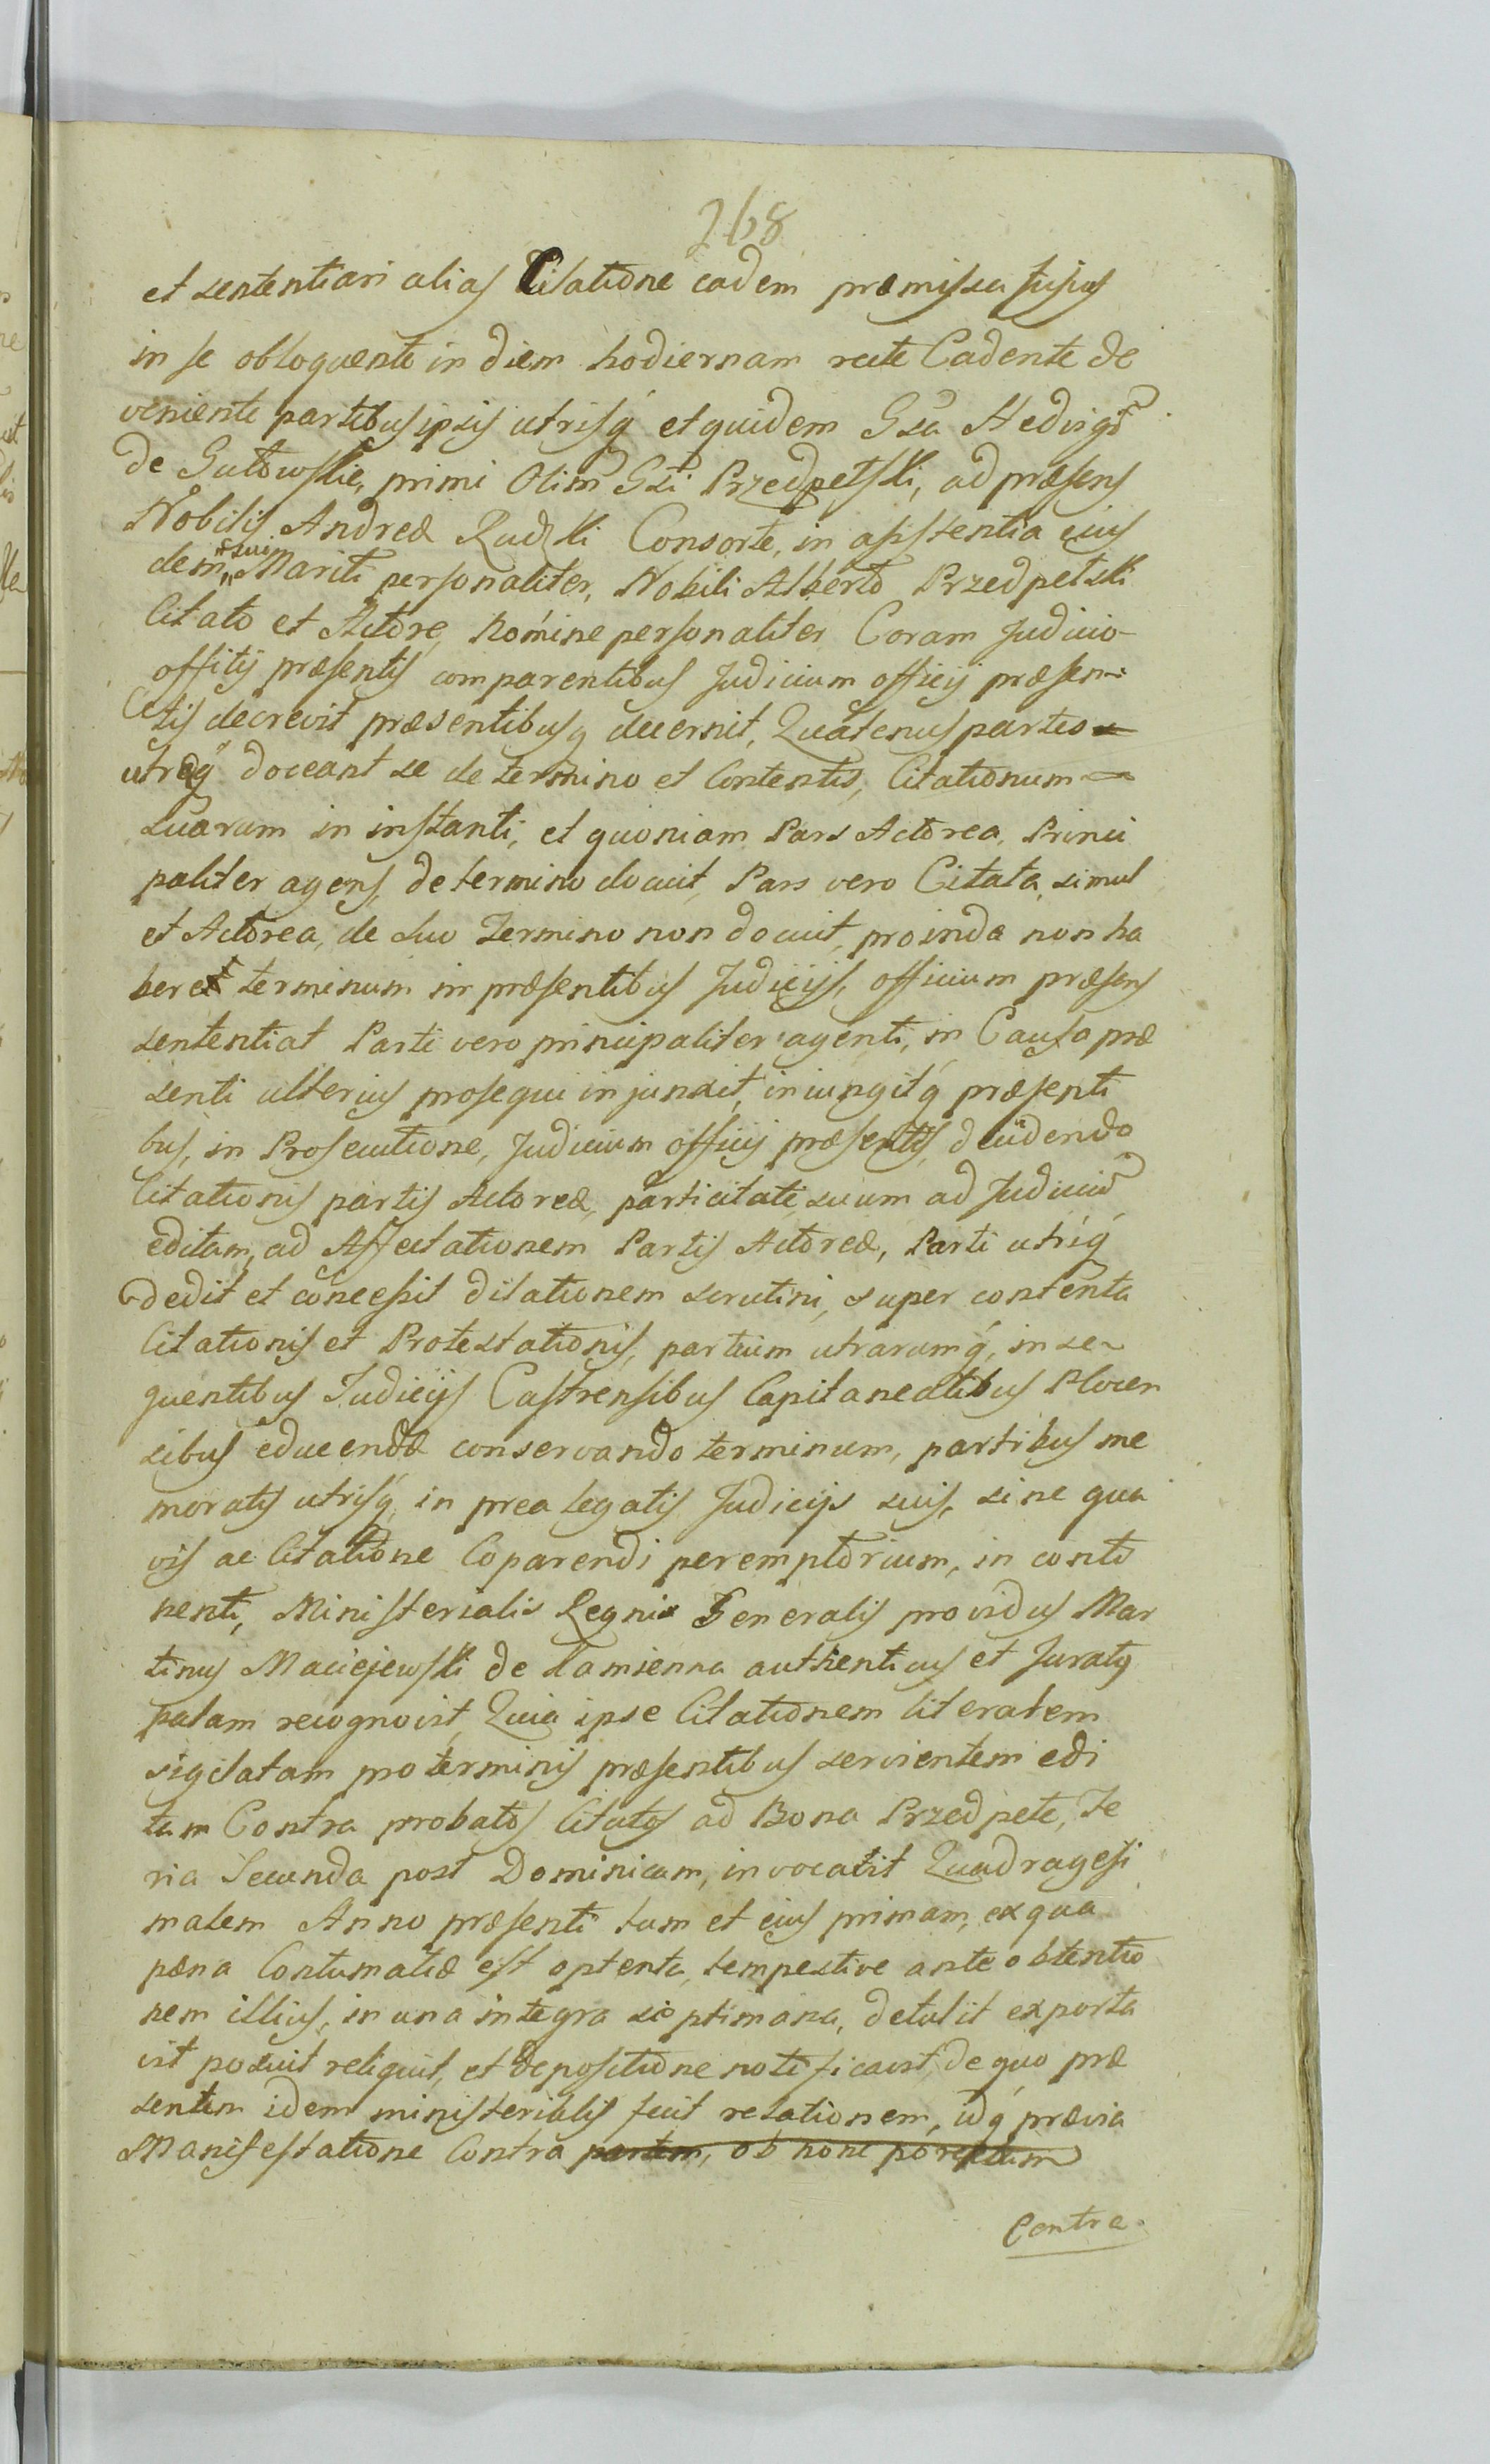 268
et sententiari alias Citatione eadem præmissa fusius
in se obloquente in diem hodiernam recte Cadente de
veniente partibus ipsis utrisq et quidem Gsa Hedvigi
de Gutowskie, primi Olim Gsi Przedpetski, ad præsens
Nobilis Andreæ Rudzki Consorte, in assistentia eius
dem sui Mariti personaliter, Nobili Alberto Przedpetski
Citato et Actore, homine personaliter Coram Judicio
offitij præsentis comparentibus Judicium officij præsen
tis decrevit præsentibusq decernit, Quatenus partes
utræq doceant se de termino et Contentis, Citationum
suarum in instanti, et quoniam Pars Actorea, Princi
paliter agens, de termino docuit, Pars vero Citata, simul
et Actorea, de suo Termino non docuit, proinde non ha
beret terminum in præsentibus Judicijs, officium præsens
sententiat Parti vero principaliter agenti, in Causa præ
senti ulterius prosequi injunxit, iniungitq præsenti
bus, in Prosecutione, Judicium officij præsentis, decidendo
Citationis partis Actoreæ, parti citati, suum ad Judiciu
editam, ad Affectationem Partis Actoreæ, Parti utriq
dedit et concessit dilationem scrutini, super contenta
Citationis et Protestationis, partium utrarumq, in se
quentibus Judicijs Castrensibus Capitanealibus Plocen
sibus educendæ conservando terminum, partibus me
moratis utrisq, in prea legatis Judicijs suis, sine qua
vis ac Citatione Coparendi peremptorium, in conti
nenti, Ministerialis Regni Generalis providus Mar
tinus Maciejewski de Kamienna authenticus et Juratq
palam recognovit, Quia ipse Citationem literatem
sigilatam pro terminis præsentibus servientem edi
tam Contra probatos Citatos ad Bona Przedpete, Fe
ria Secunda post Dominicam, invocavit Quadragesi
malem Anno præsenti tum et eius primam, ex qua
pæna Contumatiæ est optenta, tempestive ante obtentio
nem illius, in una integra septimana, detulit exporta
vit posuit reliquit, et depositione notificavit, de quo præ
sentem idem ministerialis fecit relationem, idq prævia
Manifestatione Contra partem, ob none poreptum
Contra